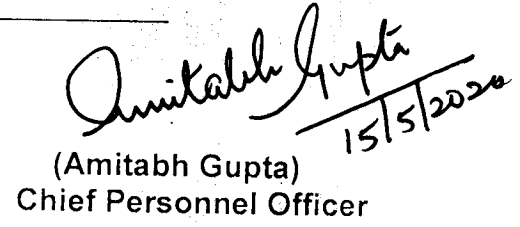 Amitabh Gupta
15/5/2020
(Amitabh Gupta)
Chief Personnel Officer